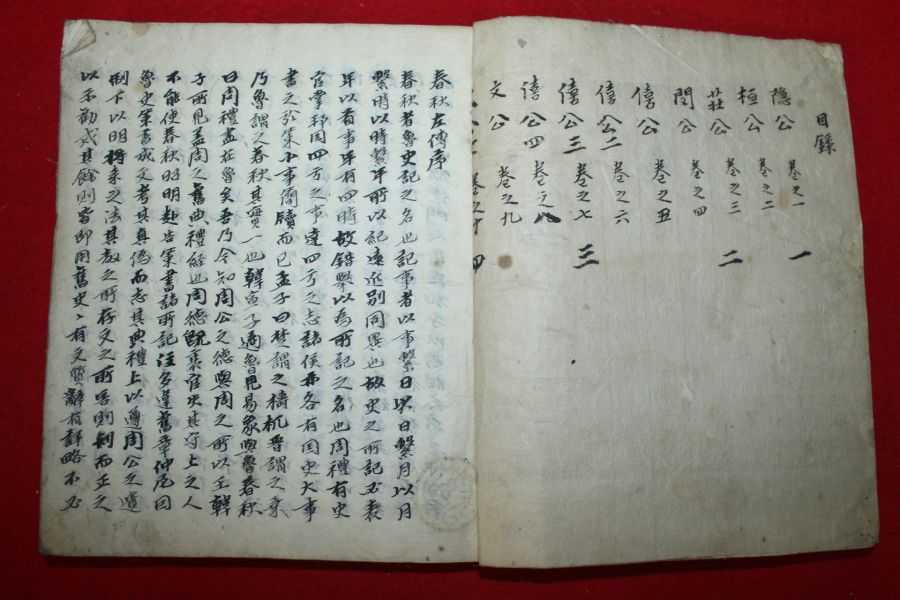 目錄
隱公 卷之一 一
桓公 卷之二
莊公 卷之三 二
閔公 卷之四
僖公 卷之五
僖公二 卷之六
僖公三 卷之七 三
僖公四 卷之八
文公 卷之九
卷之十 四
春秋左傳序
春秋者魯史記之名也記事者以事繫日以日繫月以月
繫時以時繫年所以紀遠近別同異也故史之所記必表
年以首事年有四時故錯舉以為所記之名也周禮有史
官掌邦国四方之事達四方之志諸侯亦各有国史大事
書之於策小事簡牘而已孟子曰楚謂之檮杌晋謂之乘
乃魯謂之春秋其實一也韓宣子適魯見易象與魯春秋
曰周禮盡在魯矣吾乃今知周公之德與周之所以王韓
子所見盖周之舊典禮經也周德旣衰官失其守上之人
不能使春秋昭明赴告策書諸所記注多違舊章仲尼因
魯史策書成文考其真僞而志其典禮上以遵周公之遺
制下以明將来之法其敎之所存文之所害則刊而正之
以示勸戒其餘則皆即用舊史〻有文質辭有詳略不必